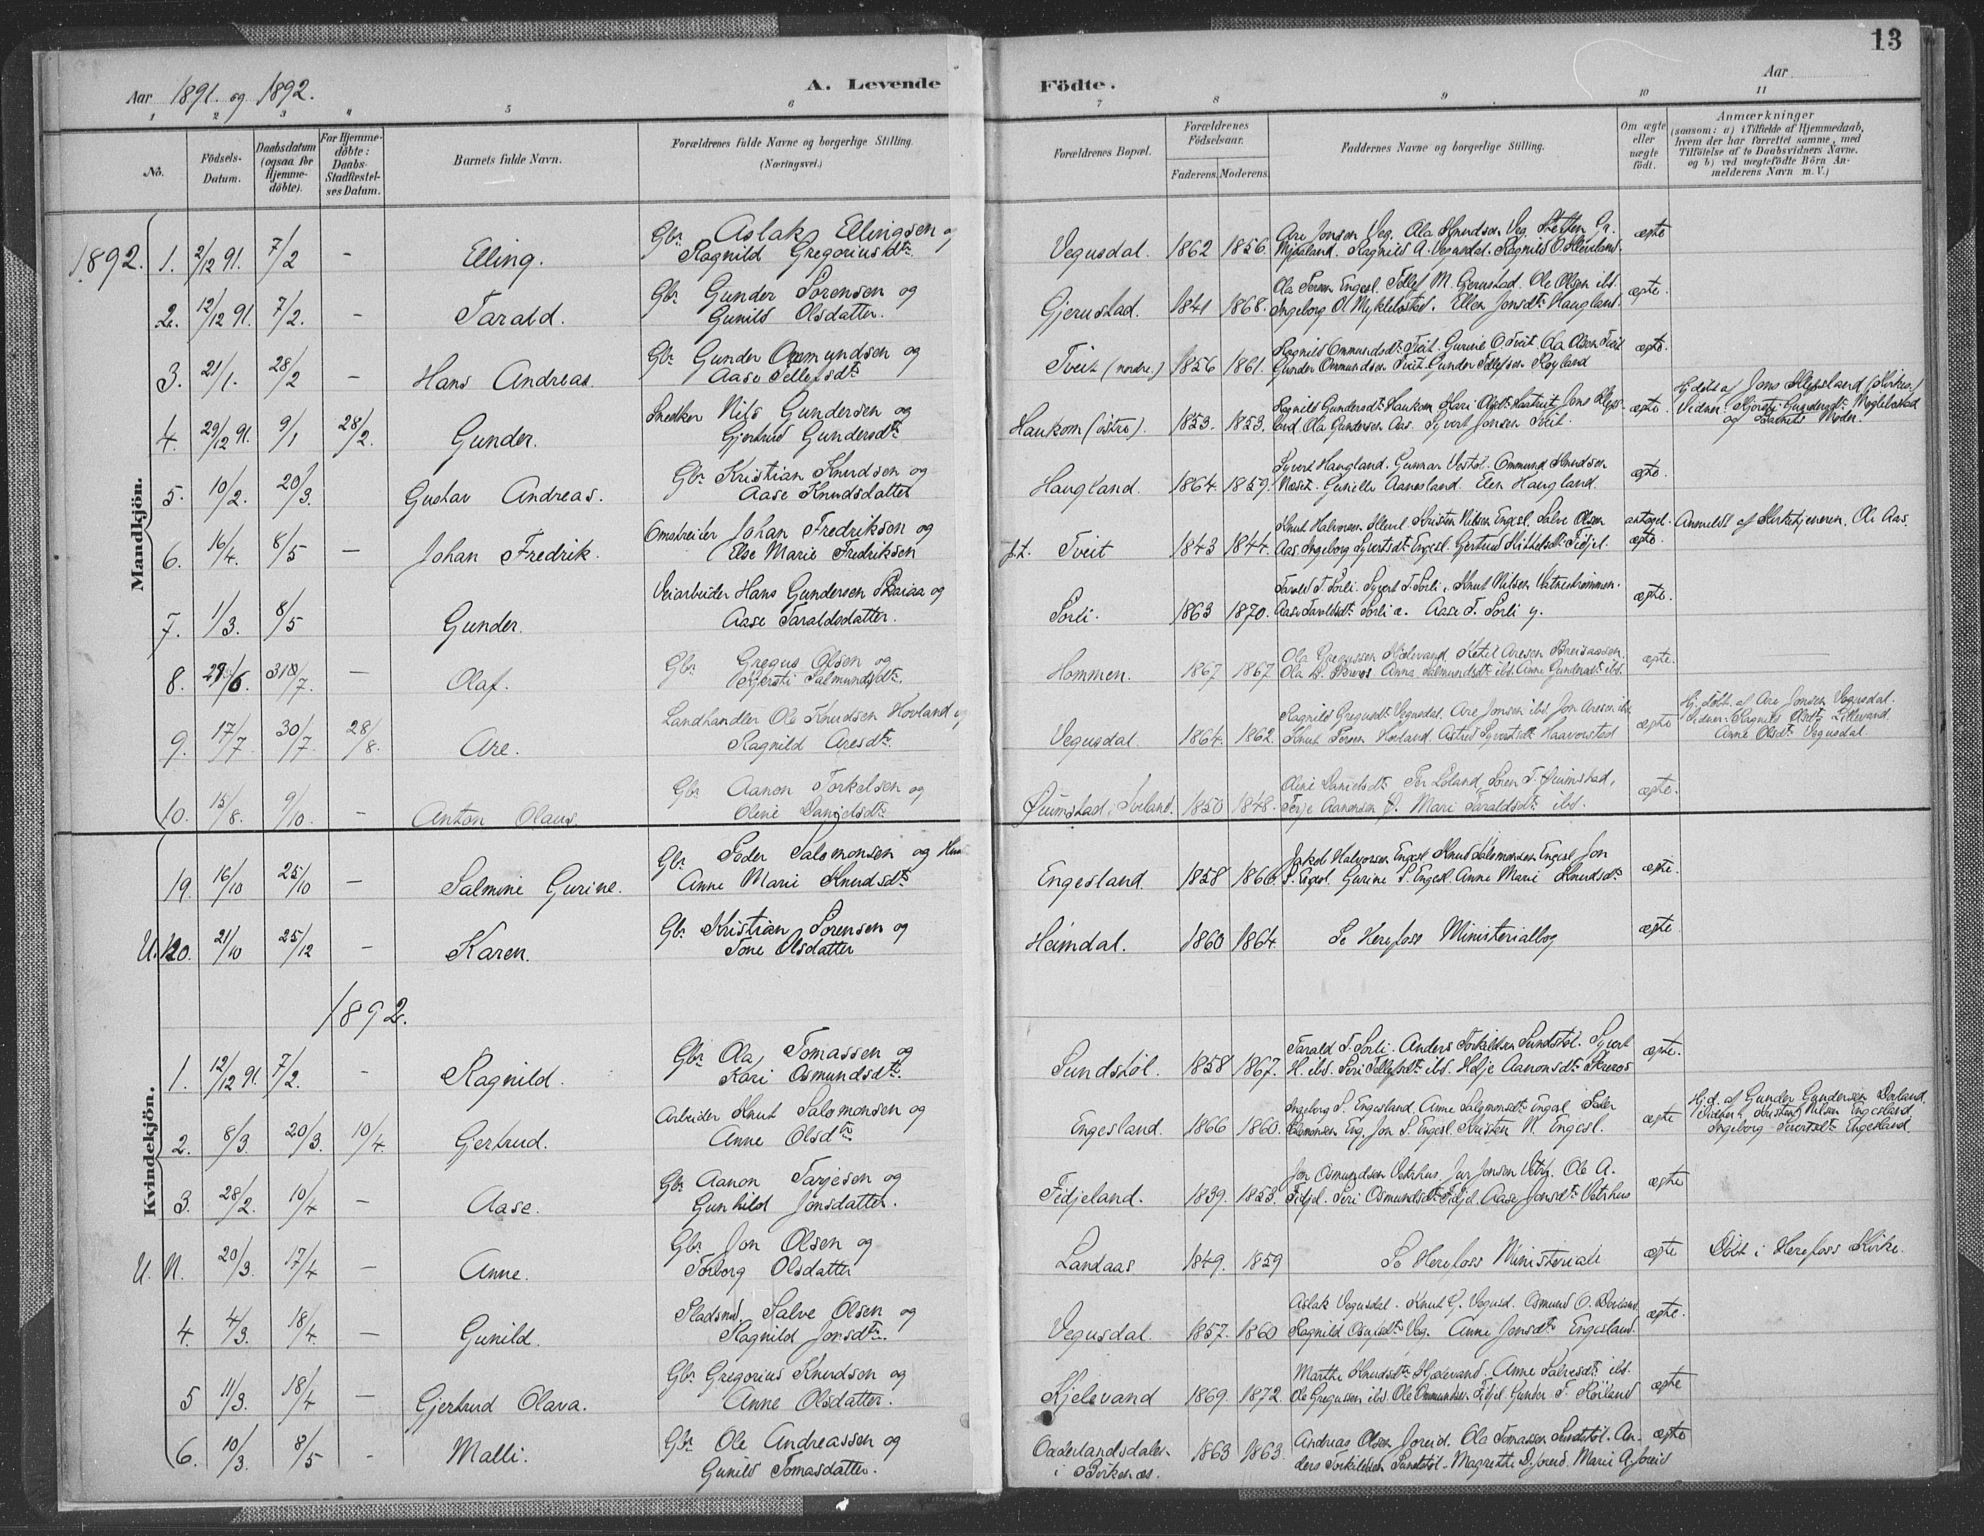 13
Aar 1891. og 1892.
A. Levende
Födte.
Aar
1 2 3 4 5 6 7 8 9 10 11
No.
Födsels-Datum.
Daabsdatum (ogsaa for Hjemmedöbte).
For Hjemmedöbte: Daabs-Stadfæstelses Datum.
Barnets fulde Navn.
Forældrenes fulde Navne og borgerlige Stilling. (Næringsvei.)
Forældrenes Bopæl.
Forældrenes Födselsaar.
Faderens. Moderens.
Faddernes Navne og borgerlige Stilling.
Om ægte eller uægte födt.
Anmærkninger
(saasom: a) i Tilfælde af Hjemmedaab, hvem der har forrettet samme, med Tilföielse af to Daabsvidners Navne. og b) ved uægtefödte Börn Anmelderens Navn m. V.)
Mandkjön.
1892. 1. 2/12 91. 7/2 - Elling. Gbr. Aslak Ellingsen og Ragnild Gregoriusdtr. Vegusdal. 1862 1856. Are Jonsen Veg. Ola Knudsen Veg. Steffen Gr. Mjaaland. Ragnild A. Vegusdal. Ragnild O. Hevland. ægte
2. 12/12 91. 7/2. - Tarald. Gbr. Gunder Sorensen og Gunild Olsdatter. Gjerustad. 1841 1868. Ola Soren Engesl. Tellef M. Gerustad. Ole Olsen ibd. Ingeborg O. Myklebostad. Ellen Jonsdtr. Haugland. ægte.
3. 21/1. 28/2 - Hans Andreas. Gbr. Gunder Ommundsen og Aase Tellefsdtr. Tveit (nordre.) 1856 1861. Ragnild Ommundsdtr. Tveit. Gurine O. Tveit. Ola Olsen Tveit Gunder Ommundsen Tveit. Gunder Tellefsen Royland ægte.
4. 29/12 91. 9/1 28/2. Gunder. Snedker Nils Gundersen og Gjertrud Gundersdtr. Haukom (östre). 1853. 1853. Ragnild Gundersdtr. Haukom. Kari Olsdtr. Jons Ola Gundersen Aas. Syvert Jonsen Tveit. ægte. Hj. döbt af Jons (Kirkes.) Vidner: Kjersti Gundersdtr. og Barnets Moder.
5. 10/2. 20/3. Gustav Andreas. Gbr. Kristian Knudsen og Aase Knudsdatter Haugland. 1864. 1859. Syvert Haugland. Gunnar Vestöl. Ommund Knudsen Næset. Gunille Aanesland. Elen Haugland. ægte.
6. 16/4. 8/5 - Johan Fredrik. Omstreifer Johan Fredriksen og Else Marie Fredriksen pt. Tveit 1843 1844. Knut Halvorsen Kristen Nilsen Engesl. Salve Olsen Aas. Ingeborg Syvertsdtr. Engesl. Gertrud Fidjel. antagel. ægte. Anmeldt af Kirketjeneren, Ole Aas.
7. 1/3. 8/5 Gunder. Veiarbeider Hans Gundersen Skaiaa og Aase Taraldsdatter. Sorli. 1863 1870. Tarald T. Sorli. Syvert T. Sorli. Knut Nilsen Vatnestrommen. Aase Taraldsdtr. Sorli æ. Aase T. Sorli y. ægte.
8. 29/6. 31/7. - Olaf. Gbr. Gregus Olsen og Kjersti Salmundsdtr. Hommen. 1867 1867 Ola Gregussen Kjelevand. Ketil Aresen Ola Anna Salmundsdtr. ibd. Anne Gundersdtr. ibd. ægte.
9. 17/7. 30/7. 28/8. Are. Landhandler Ole Knudsen Hovland og Ragnild Aresdtr. Vegusdal. 1864. 1862. Ragnild Gregusdtr. Vegusdal. Are Jonsen ibd. Jon Aresen ibd. Knut Hovland. Astrid Syvertsdtr. Haavorstad ægte Hj. döbt. af Are Jonsen Vegusdal. Vidner: Ragnild Olsdtr. Lillevand. Anne Olsdtr. Vegusdal.
10. 15/8. 9/10. - Anton Olaus. Gbr. Aanon Torkelsen og Oline Danjelsdtr. Öuimstad, Iveland. 1850 1848. Oline Danielsdtr. Per Loland. Soren T. Öuimstad, Terje Aanonsen Ö. Mari Taraldsdtr. ibd. ægte.
Kvindekjön.
19. 16/10 25/10 - Salmine Gurine. Gbr. Peder Salomonsen og Anne Marie Knudsdtr. Engesland 1858 1866. Jakob Halvorsen Engesl. Knud Salomonsen Engesl. Jon S. Engesl. Gurine S. Engesl. Anne Marie Knudsdtr. ægte.
U. 120. 21/10 25/12 - Karen. Gbr. Kristian Sorensen og Tone Olsdatter Heimdal. 1860 1864. Se Herefoss Ministerialbog ægte.
1892.
1. 12/12 91. 7/2. - Ragnild. Gbr. Ola Tomassen og Kari Osmundsdtr. Sundstöl. 1858 1867. Tarald T. Sorli. Anders Torkildsen Sundstöl. Syvert H. ibd. Siri Tellefsdtr. ibd. Helje Aanonsdtr. Skreros ægte.
2. 8/3. 20/3. 10/4. Gjertrud. Arbeider Knut Salomonsen og Anne Olsdtr. Engesland. 1866 1860. Ingeborg S. Engesland. Anne Salomonsdtr. Engesl. Peder Salomonsen Eng. Jon S. Engesl. Kristen N. Engesl. ægte Hj.d. af Gunder Gundersen Dovland. Vidner: Kristen Nilsen Engesland Ingeborg Siversdtr. Engesland.
3. 28/2. 10/4 - Aase. Gbr. Aanon Tarjesen og Gunhild Jonsdatter. Fidjeland. 1839. 1853. Jon Osmundsen Vatshus. Jur Jonsen Ole A. Fidjel. Siri Osmundsdtr. Fidjel. Aase Jonsdtr. Vatshus ægte
U. N. 20/3. 17/4 - Anne. Gbr. Jon Olsen og Torborg Olsdatter Landaas 1849. 1859 Se Herefoss Ministeriale ægte Döbt i Herefoss Kirke.
4 4/3. 18/4. - Gunild. Pladsmd. Salve Olsen og Ragnild Jonsdtr. Vegusdal. 1857. 1860 Aslak Vegusdal. Knut G. Vegusd. Osmund O. Dovland. Ragnild Veg. Anne Jonsdtr. Engesland. ægte.
5 11/3. 18/4 - Gjertrud Olava. Gbr. Gregorius Knudsen og Anne Olsdatter. Kjelevand 1869. 1872. Marthe Knudsdtr. Kjelevand. Anne Salvesdtr. ibd. Ole Gregussen ibd. Ole Ommundsen Fidjel. Gunder T. Röiland ægte
6. 10/3. 8/5 - Malli. Gbr. Ole Andreassen og Gunild Tomasdatter. Oddersland­sdalen i Birkenæs. 1863 1863. Andreas Olsen Joreid. Ola Tomassen Sundstöl. Anders Torkildsen Sundstöl. Magrethe D. Joreid. Marie A. Joreid ægte